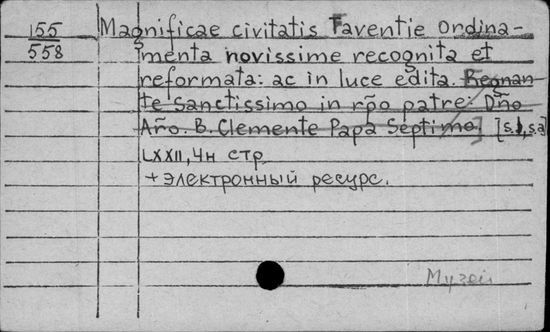 155 Magnificae civitatis Faventie ordina-
558 menta novissime recognita et
reformata: ac in luce edita. Regnan-
te Sanctissimo in rp̃o patre: Dño
Año. B. Clemente Papa Septimo] [s.l., s.a]
LXXII, 4н стр
+ электронный ресурс.
Музей